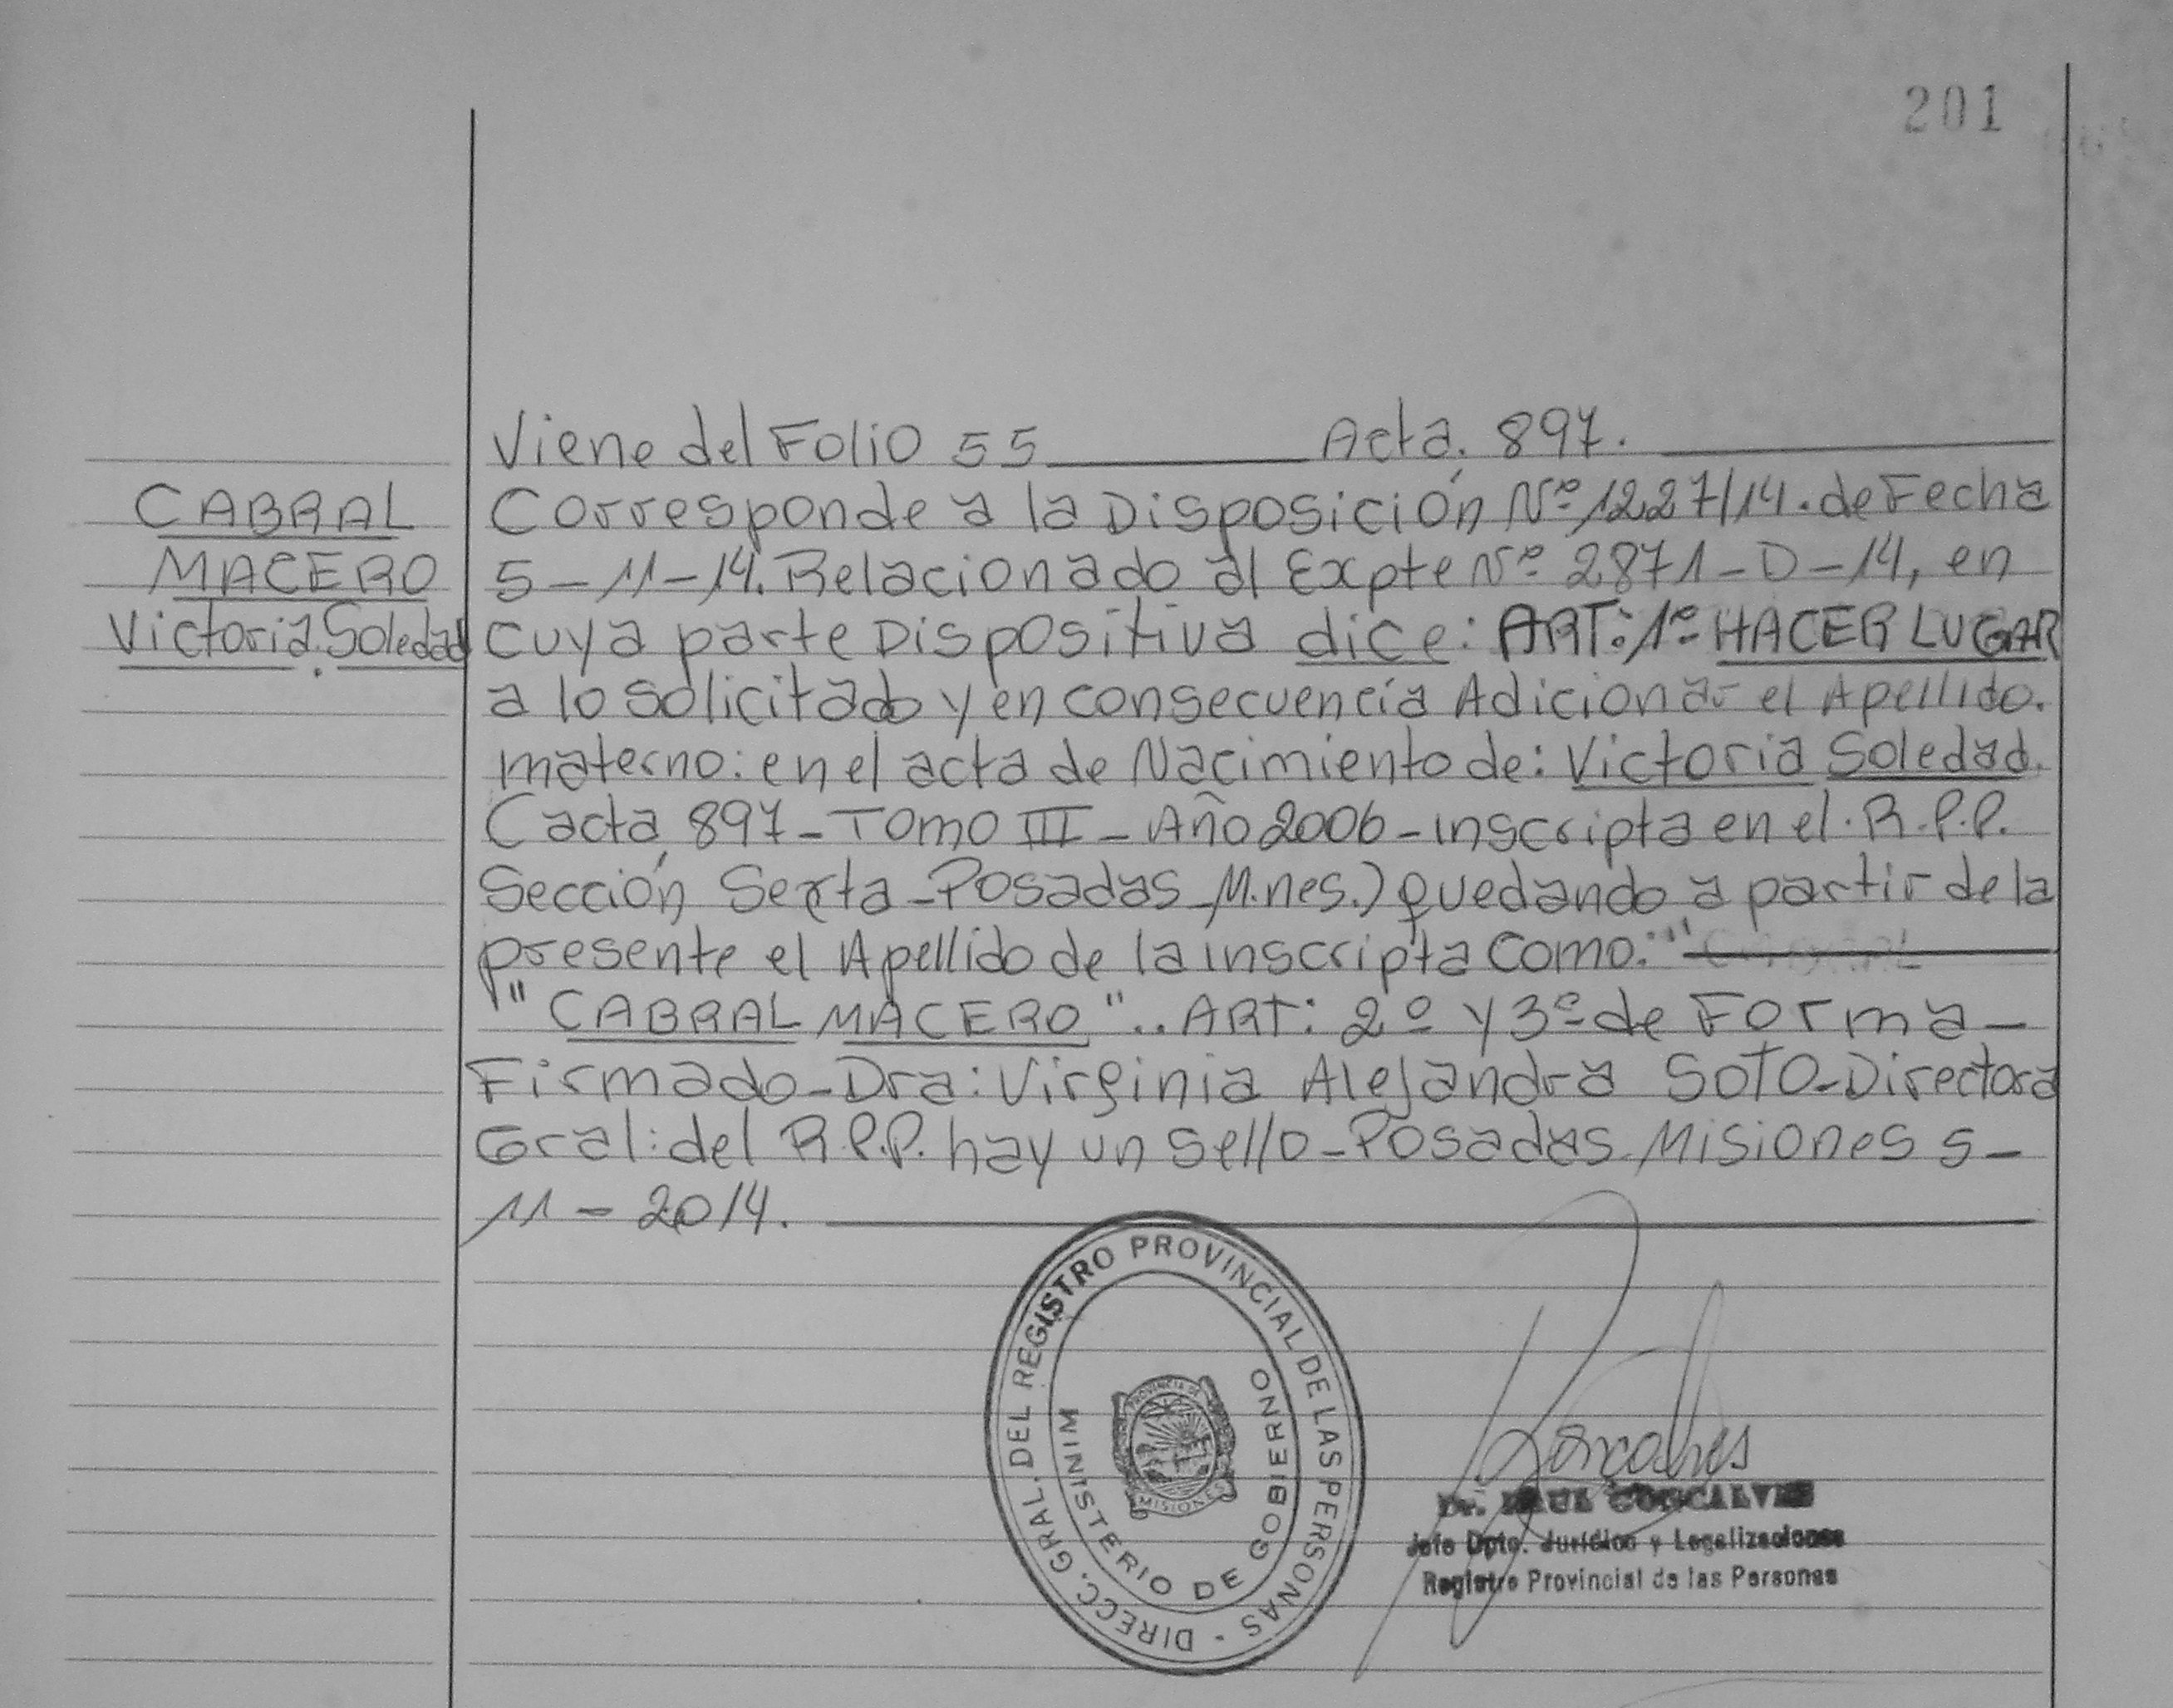 201
Viene del Folio 55 Acta. 897.
CABRAL
MACERO
Victoria Soledad
Corresponde a la Disposición Nº 1227/14. de Fecha
5-11-14. Relacionado al Expte Nº 2871-D-14, en
cuya parte Dispositiva dice: ART: 1º HACER LUGAR
a lo solicitado y en consecuencia Adicionar el Apellido.
materno: en el acta de Nacimiento de: Victoria Soledad.
(acta 897-Tomo III-Año 2006-inscripta en el R.P.P.
Sección Sexta-Posadas M.nes.) quedando a partir de la
presente el Apellido de la inscripta como: "
"CABRAL MACERO".. ART: 2º y 3º de Forma-
Firmado-Dra: Virginia Alejandra SOTO-Directora
Gral: del R.P.P. hay un sello-Posadas Misiones 5-
11-2014.
DIRECC. GRAL. DEL REGISTRO PROVINCIAL DE LAS PERSONAS -
MINISTERIO DE GOBIERNO
PROVINCIA DE
MISIONES
Goncalves
Dr. RAUL GONCALVES
Jefe Dpto. Jurídico y Legalizaciones
Registro Provincial de las Personas